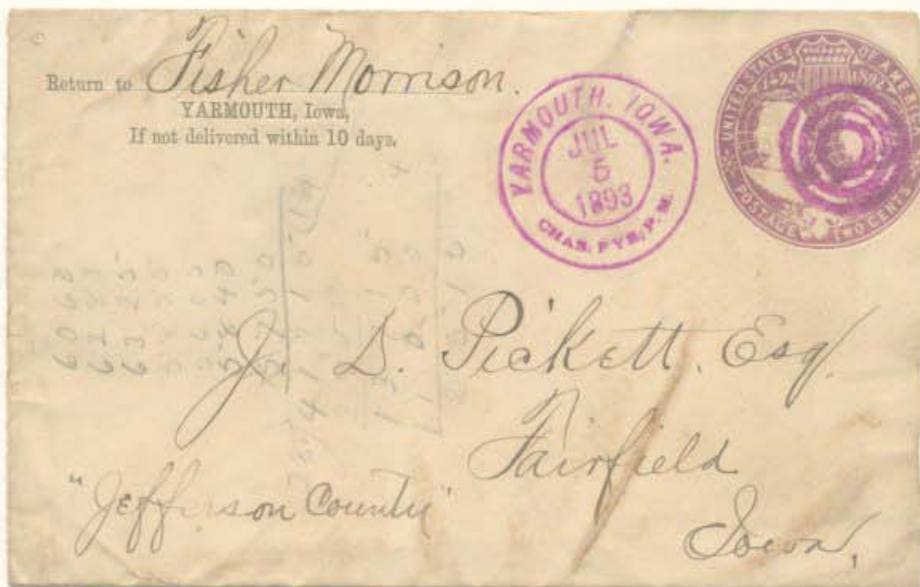 Return to Fisher Morrison.
YARMOUTH, Iowa,
If not delivered within 10 days.
YARMOUTH, IOWA.
JUL
5
1893
CHAS. PYE, P. M.
UNITED STATES OF AMERICA
1492 1892
POSTAGE TWO CENTS
J. D. Pickett, Esq.
Fairfield
"Jefferson County"
Iowa,